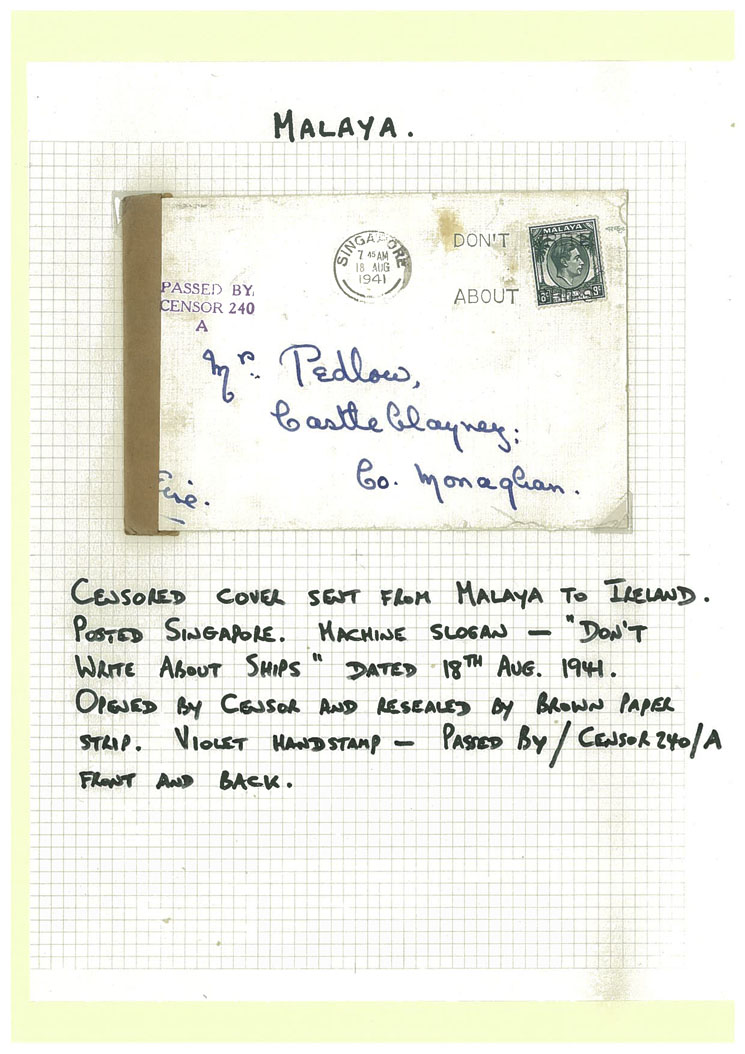 MALAYA.
SINGAPORE
7 45 AM
18 AUG
1941
DON'T
ABOUT
MALAYA
8c 8c
PASSED BY
CENSOR 240
A
Mr. Pedlow,
CastleBlayney;
Co. Monaghan.
Eire.
CENSORED COVER SENT FROM MALAYA TO IRELAND.
POSTED SINGAPORE. MACHINE SLOGAN — "DON'T
WRITE ABOUT SHIPS" DATED 18TH AUG. 1941.
OPENED BY CENSOR AND RESEALED BY BROWN PAPER
STRIP. VIOLET HANDSTAMP — PASSED BY/CENSOR 240/A
FRONT AND BACK.